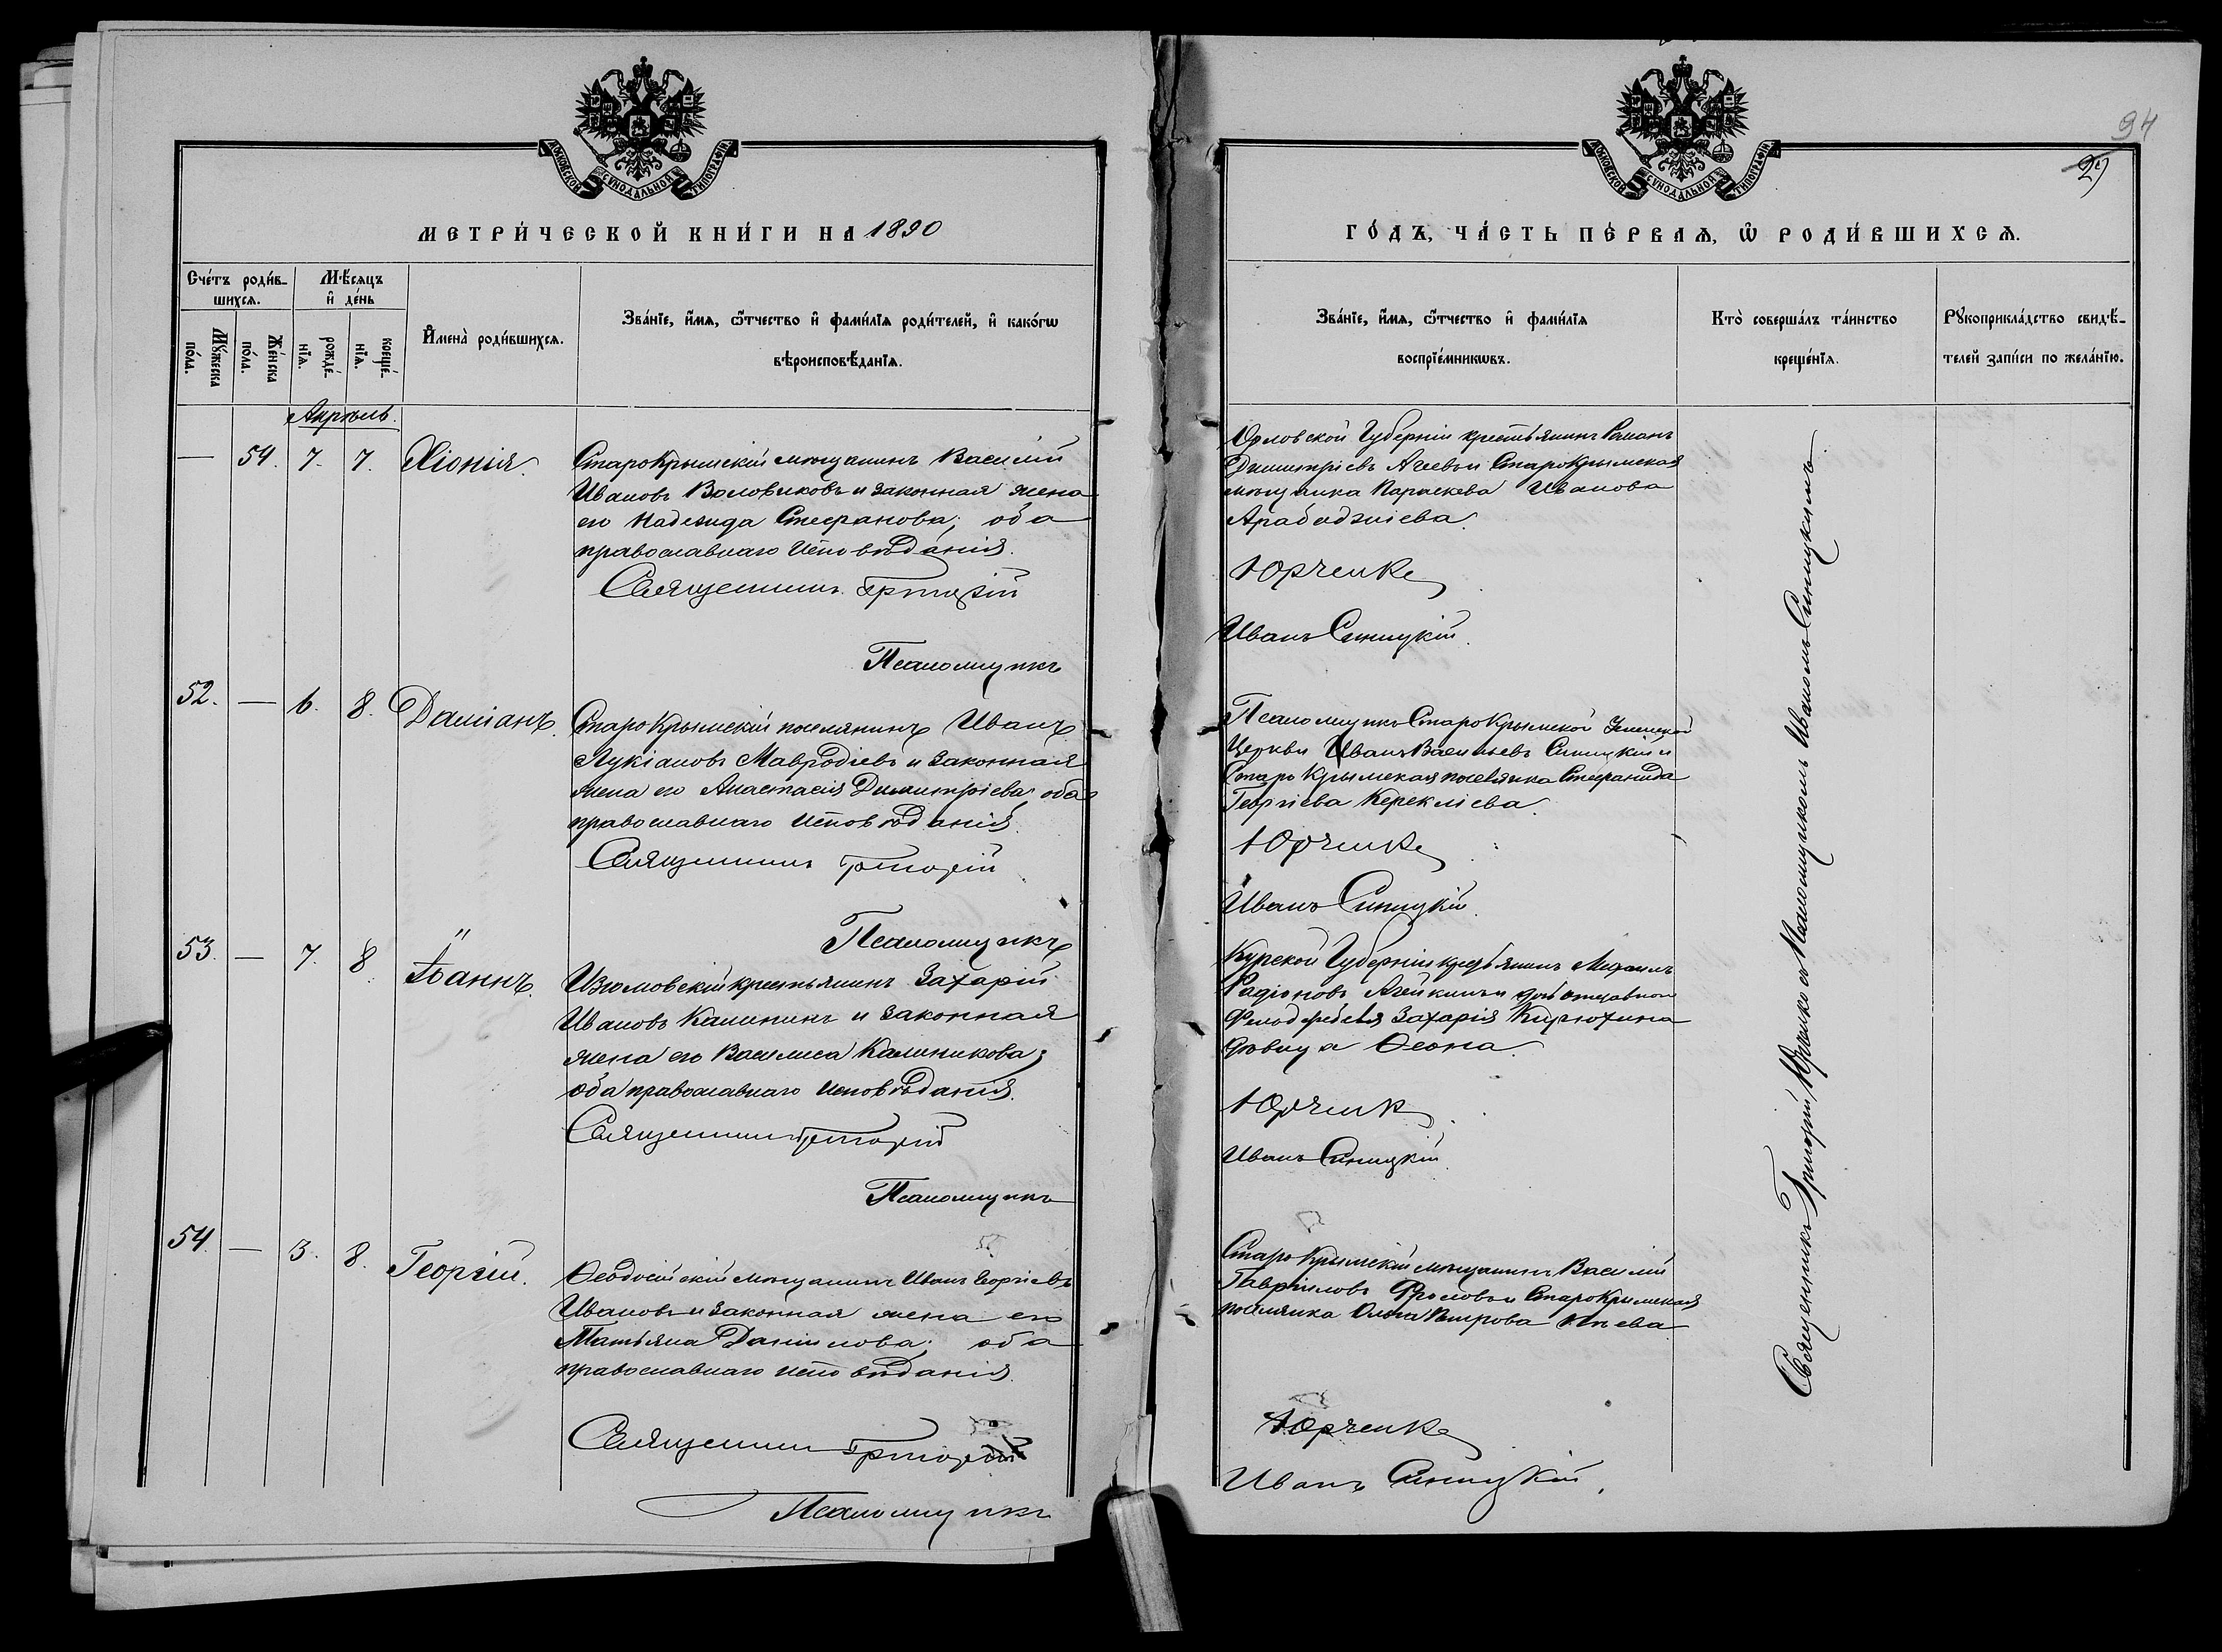 МОСКОВСКОЙ СУНОДАЛЬНОЙ ТИПОГРАФІИ
МЕТРИ́ЧЕСКОЙ КНИ́ГИ НА 1890
Сче́тъ роди́в-
шихсѧ.
Мѣ́сѧцъ
и҆ де́нь
Мꙋ́жеска
по́ла.
Же́нска
по́ла.
рожде́-
нїѧ.
креще́-
нїѧ.
И҆мена̀ роди́вшихсѧ.
Зва́нїе, и҆́мѧ, ѻ҆́тчество и҆ фами́лїѧ роди́телей, и҆ како́гѡ
вѣроисповѣ́данїѧ.
Апрѣль.
— 54. 7. 7. Хіонія.
Старокрымскій мѣщанинъ Василій
Ивановъ Воловиковъ и законная жена
его Надежда Стефанова; оба
православнаго исповѣданія.
Священникъ Григорій
Псаломщикъ
52. — 6. 8. Даміанъ.
Старокрымскій поселянинъ Иванъ
Лукіановъ Мавродіевъ и законная
жена его Анастасія Димитріева оба
православнаго исповѣданія.
Священникъ Григорій
Псаломщикъ
53. — 7. 8. Іоаннъ.
Изюмовскій крестьянинъ Захарій
Ивановъ Калининъ и законная
жена его Василиса Калиникова;
оба православнаго исповѣданія.
Священникъ Григорій
Псаломщикъ
54. — 3. 8. Георгій.
Ѳеодосійскій мѣщанинъ Иванъ Георгіевъ
Ивановъ и законная жена его
Татьяна Даніилова; оба
православнаго исповѣданія.
Священникъ Григорій
Псаломщикъ
94
МОСКОВСКОЙ СУНОДАЛЬНОЙ ТИПОГРАФІИ
ГО́ДЪ, ЧА́СТЬ ПЕ́РВАѦ, Ѽ РОДИ́ВШИХСѦ.
Зва́нїе, и҆́мѧ, ѻ҆́тчество и҆ фами́лїѧ
воспрїе́мникѡвъ.
Кто̀ соверша́лъ та́инство
креще́нїѧ.
Рꙋкоприкла́дство свидѣ́-
телей за́писи по жела́нїю.
Орловской Губерніи крестьянинъ Романъ
Димитріевъ Агеевъ и Старокрымская
мѣщанка Параскева Иванова
Арабаджіева.
Юрченко
Иванъ Синицкій.
Псаломщикъ Старокрымской Успенской
Церкви Иванъ Васильевъ Синицкій и
Старокрымская поселянка Стефанида
Георгіева Керекліева.
Юрченко
Иванъ Синицкій.
Курской Губерніи крестьянинъ Михаилъ
Радіоновъ Агейкинъ и дочь отставнаго
Захарія Кирюхина
дѣвица Ѳеона.
Юрченко
Иванъ Синицкій.
Старокрымскій мѣщанинъ Василій
Гавріиловъ Фроловъ и Старокрымская
поселянка Ольга Петрова
Юрченко
Иванъ Синицкій.
Священникъ Григорій Юрченко съ Псаломщикомъ Иваномъ Синицкимъ.